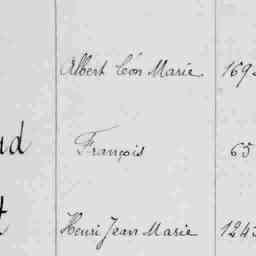 Albert Léon Marie 169
François 65
Henri Jean Marie 1243